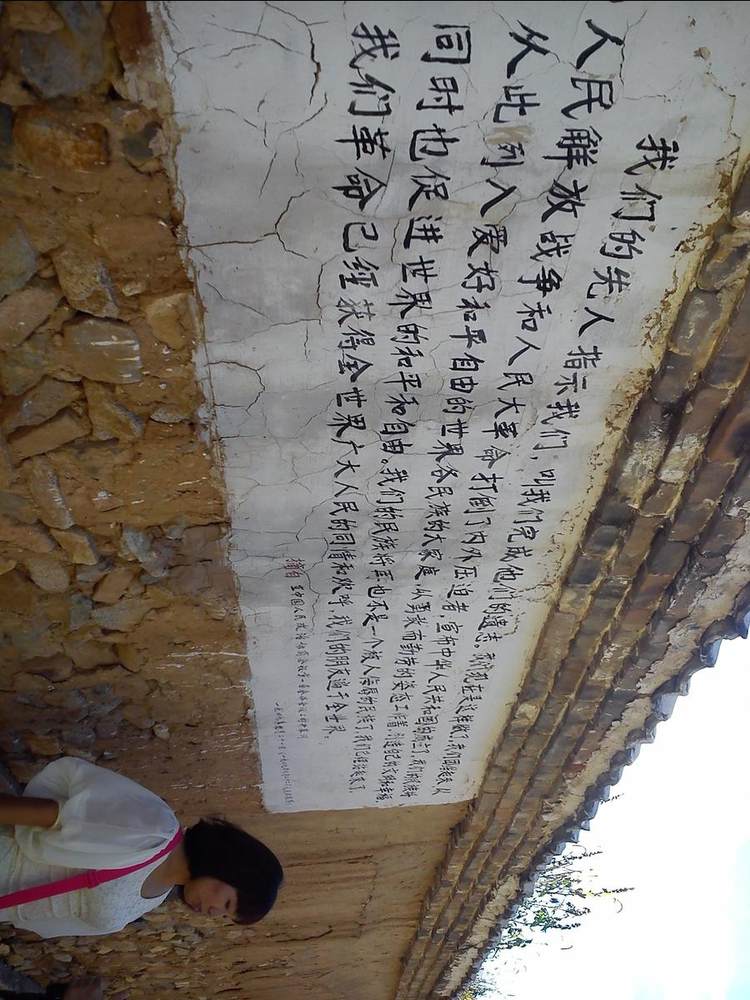 我们的先人指示我们,叫我们完成他们的遗志。我们现在是这样做了,我们团结起来,以
人民解放战争和人民大革命打倒了内外压迫者,宣布中华人民共和国的成立了。我们的民族将
从此列入爱好和平自由的世界各民族的大家庭,以勇敢而勤劳的姿态工作着,创造自己的文明和幸福,
同时也促进世界的和平和自由。我们的民族将再也不是一个被人侮辱的民族了,我们已经站起来了。
我们革命已经获得全世界广大人民的同情和欢呼,我们的朋友遍于全世界。
摘自 在中国人民政治协商会议第一届全体会议上的开幕词